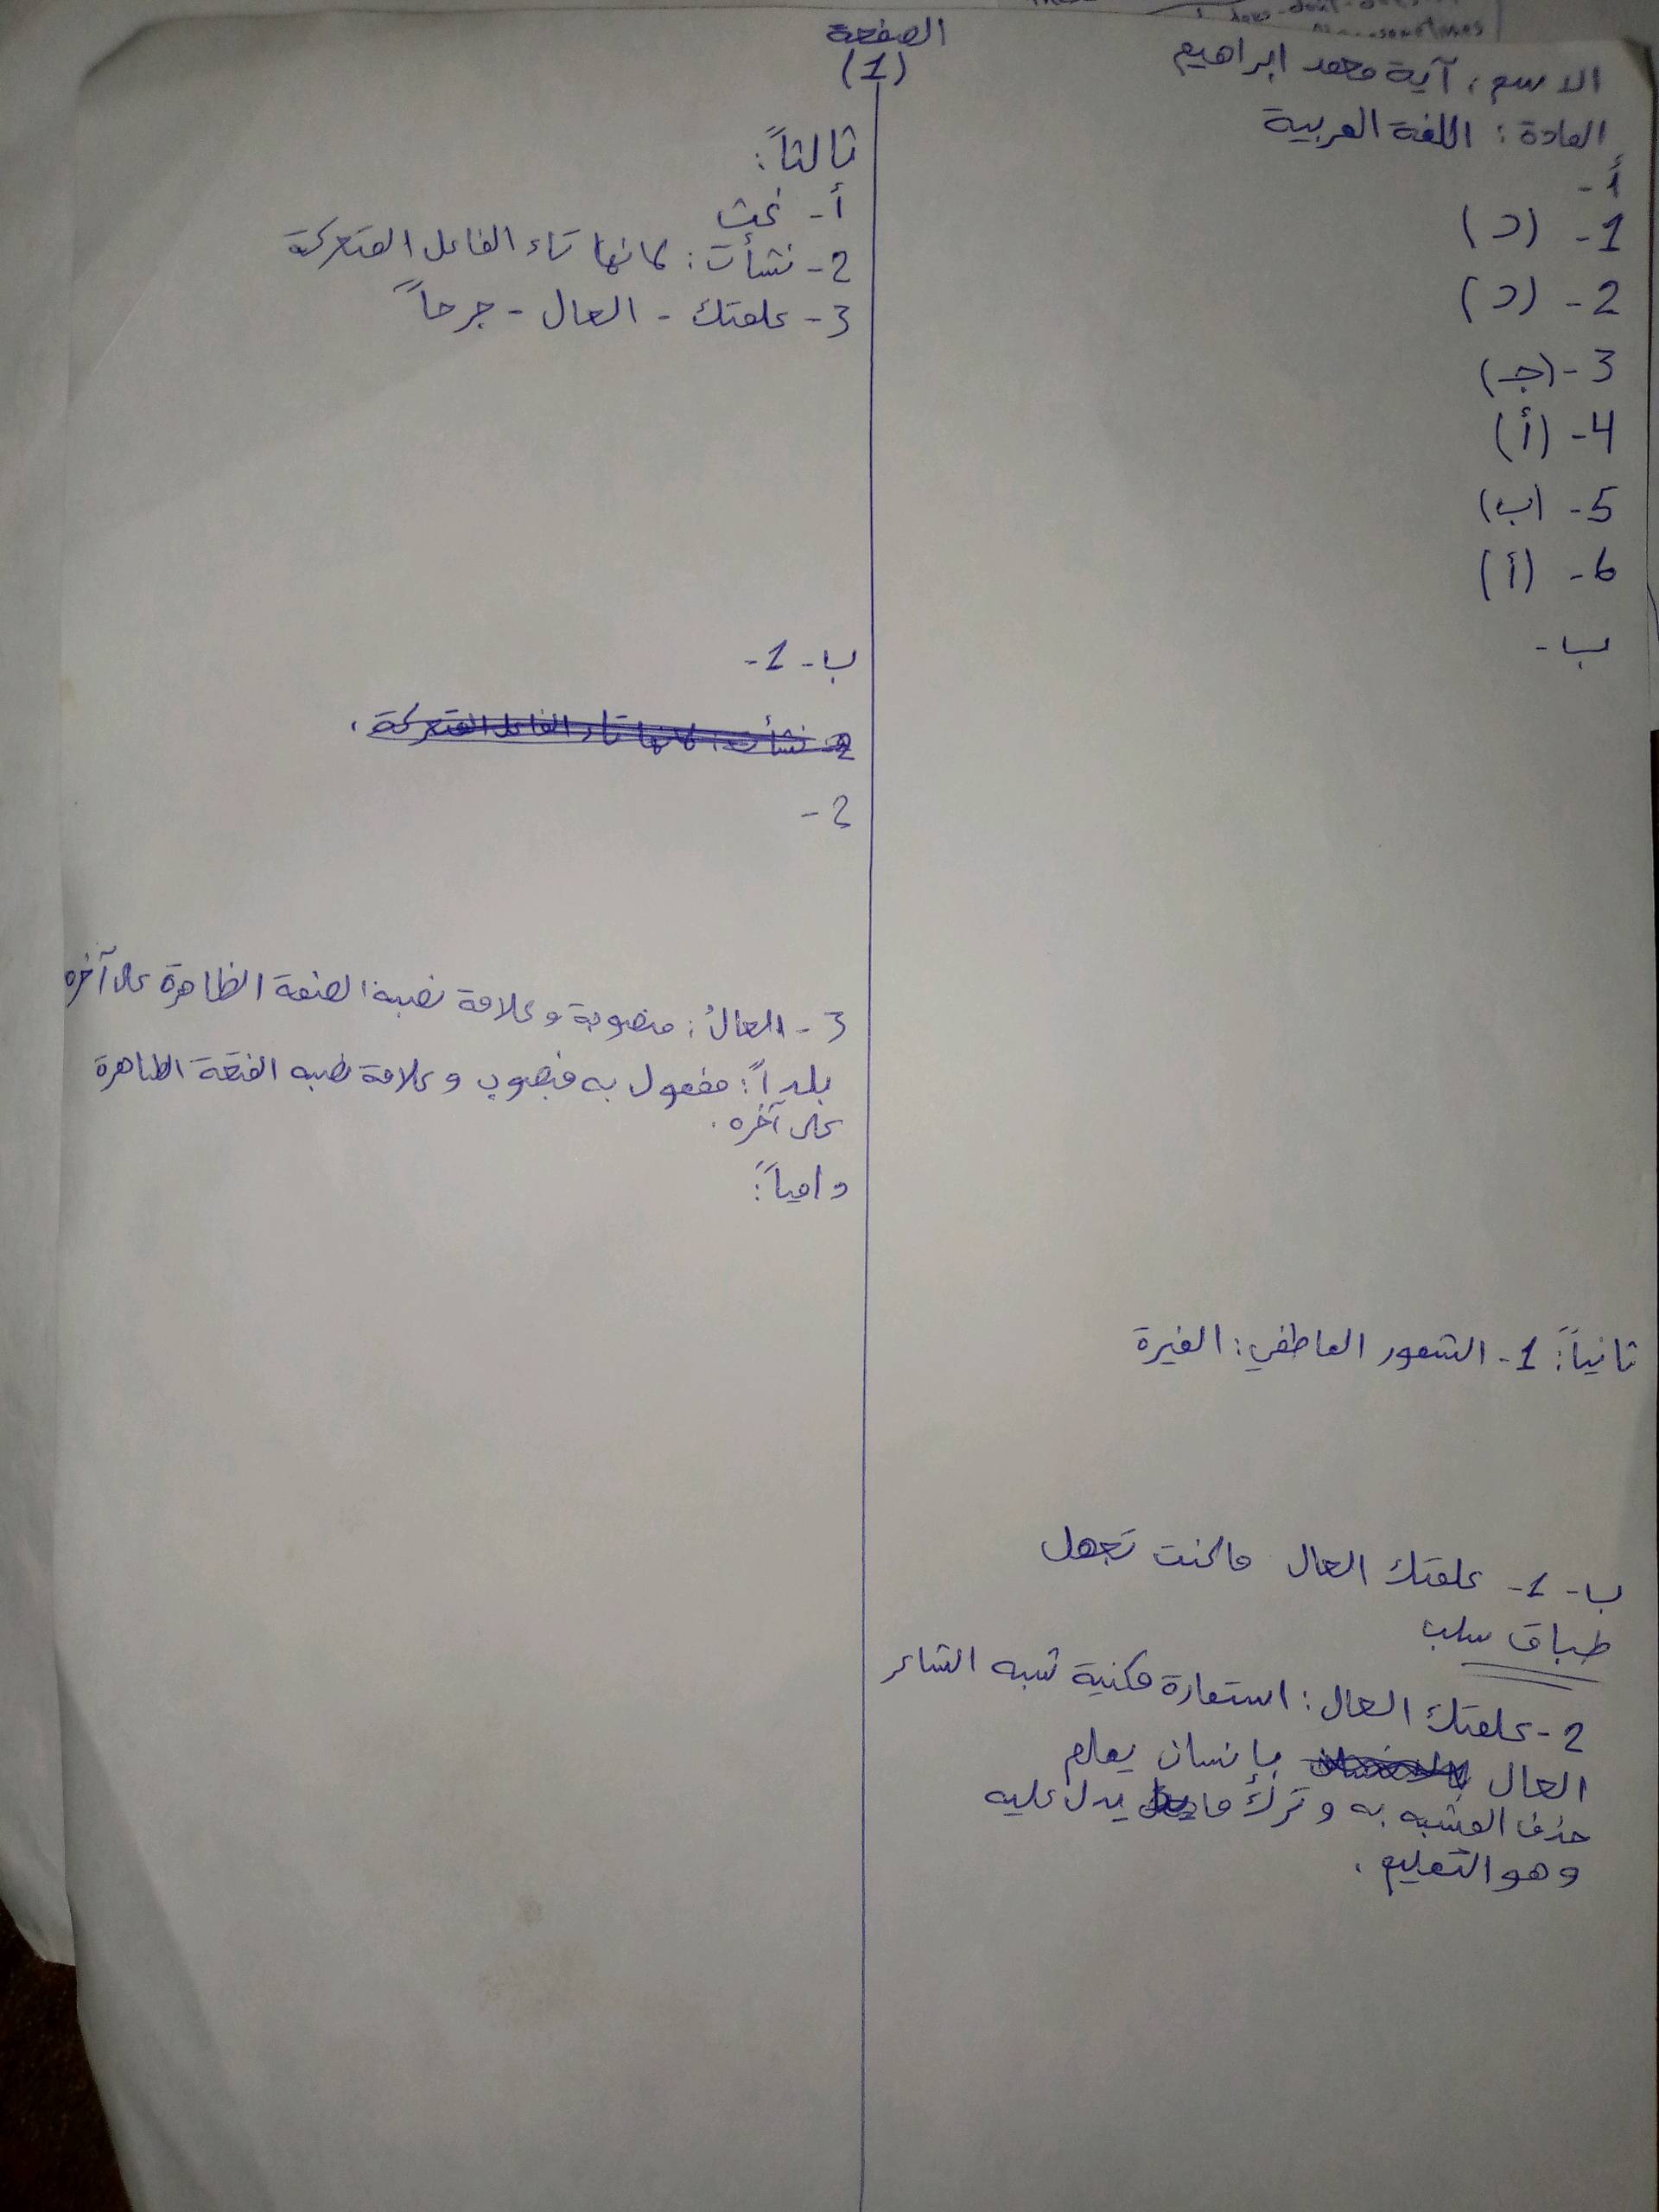 الصفحة
(1)
الاسم: آية محمد ابراهيم
المادة: اللغة العربية
أ-
1- (د)
2- (د)
3- (جـ)
4- (أ)
5- (ب)
6- (أ)
ب-
ثانياً: 1- الشعور العاطفي: الغيرة
ب- 1- علمتك الحال ماكنت تجهل
طباق سلب
2- علمتك الحال: استعارة مكنية شبه الشاعر
الحال بإنسان يعلم
حذف المشبه به وترك ما يدل عليه
وهو التعليم.
ثالثاً:
أ-
2- نشأت: تاء الفاعل المتحركة
3- علمتك - الحال - جرحاً
ب- 1-
2- نشأت: تاء الفاعل المتحركة.
2-
3- الحالُ: منصوبة وعلامة نصبه الضمة الظاهرة على آخره
بلداً: مفعول به منصوب وعلامة نصبه الفتحة الظاهرة
على آخره.
دامياً: